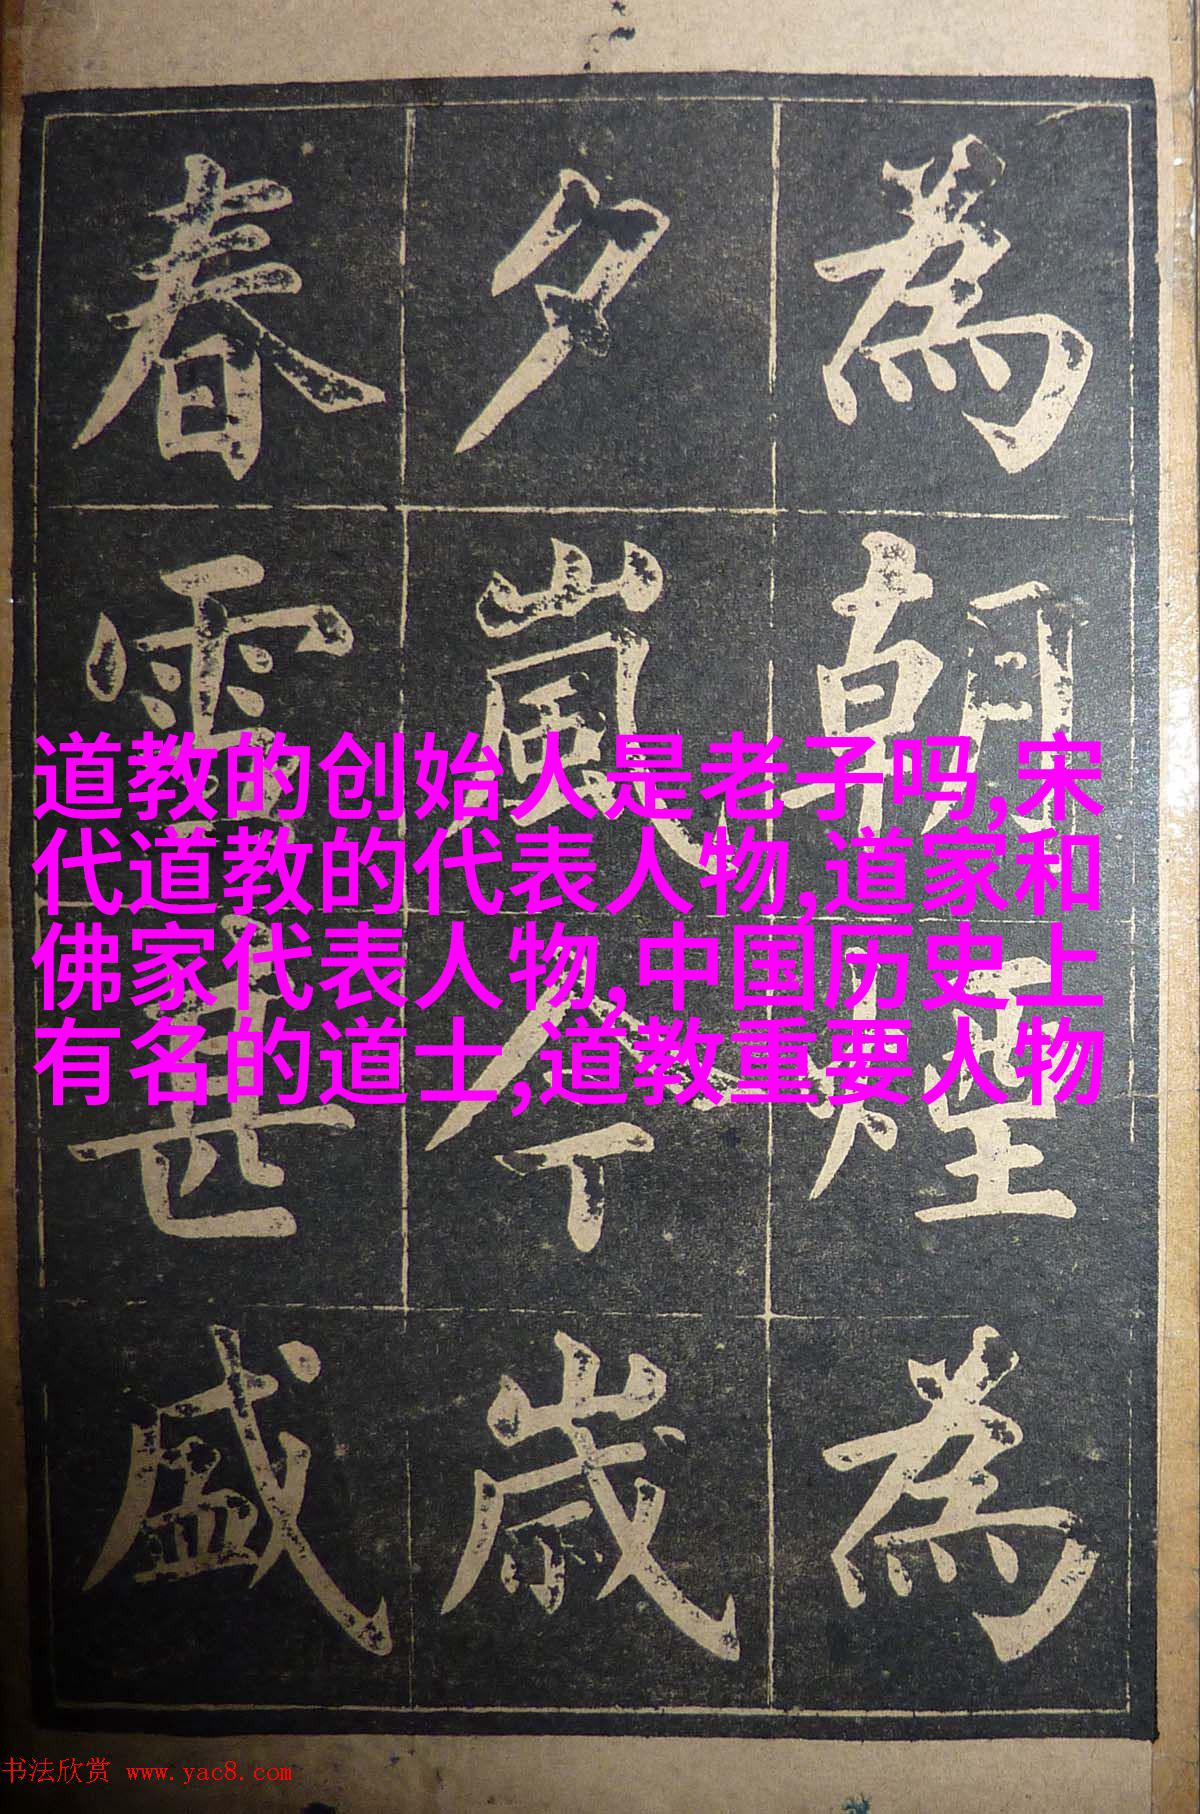 為朝煙為
夕嵐今歲
春雪甚盛
道教的创始人是老子吗,宋
代道教的代表人物,道家和
佛家代表人物,中国历史上
有名的道士,道教重要人物
书法欣赏 www.yac8.com